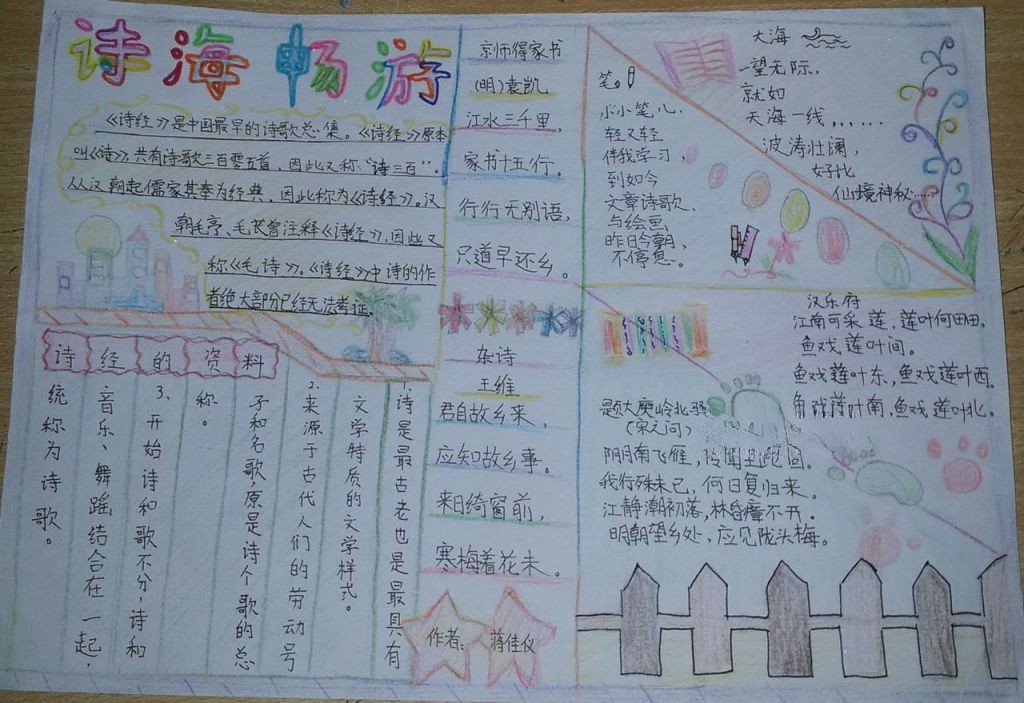 诗海畅游
《诗经》是中国最早的诗歌总集。《诗经》原本
叫《诗》，共有诗歌三百零五首，因此又称“诗三百”。
从汉朝起儒家其奉为经典，因此称为《诗经》。汉
朝毛亨、毛苌曾注释《诗经》，因此又
称《毛诗》。《诗经》中诗的作
者绝大部分已经无法考证。
诗经的资料
1.诗是最古老也是最具有
文学特质的文学样式。
2.来源于古代人们的劳动号
子和名歌原是诗个歌的总
称。
3、开始诗和歌不分，诗和
音乐、舞蹈结合在一起，
统称为诗歌。
京师得家书
(明)袁凯
江水三千里，
家书十五行。
行行无别语，
只道早还乡。
杂诗
王维
君自故乡来，
应知故乡事。
来日绮窗前，
寒梅着花未。
作者：蒋佳仪
笔。
小小笔儿.
轻又轻
伴我学习，
到如今
文章诗歌.
与绘画
昨日今朝、
不停息。
大海
一望无际，
就如
天海一线，......
波涛壮阔，
好比
仙境神秘......
汉乐府
江南可采莲，莲叶何田田。
鱼戏莲叶间。
鱼戏莲叶东，鱼戏莲叶西。
鱼戏荷叶南，鱼戏莲叶北。
题大庾岭北驿
(宋之问)
阴月南飞雁，传闻至此回。
我行殊未已，何日复归来。
江静潮初落，林昏瘴不开。
明朝望乡处，应见陇头梅。